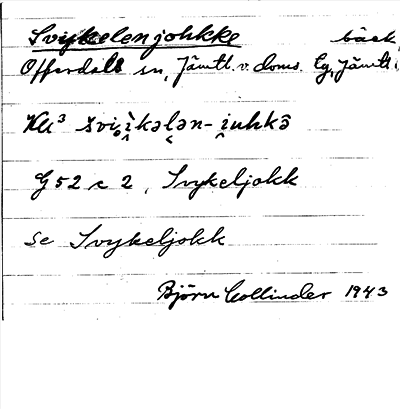 Svykelenjohkke bäck,
Offerdals sn, Jämtl. v. doms. lg, Jämtl.
Kll³ švi̮ì̭kələn- i̭uhkə̂
G 52 c 2, Svykeljokk
se Svykeljokk
Björn Collinder 1943